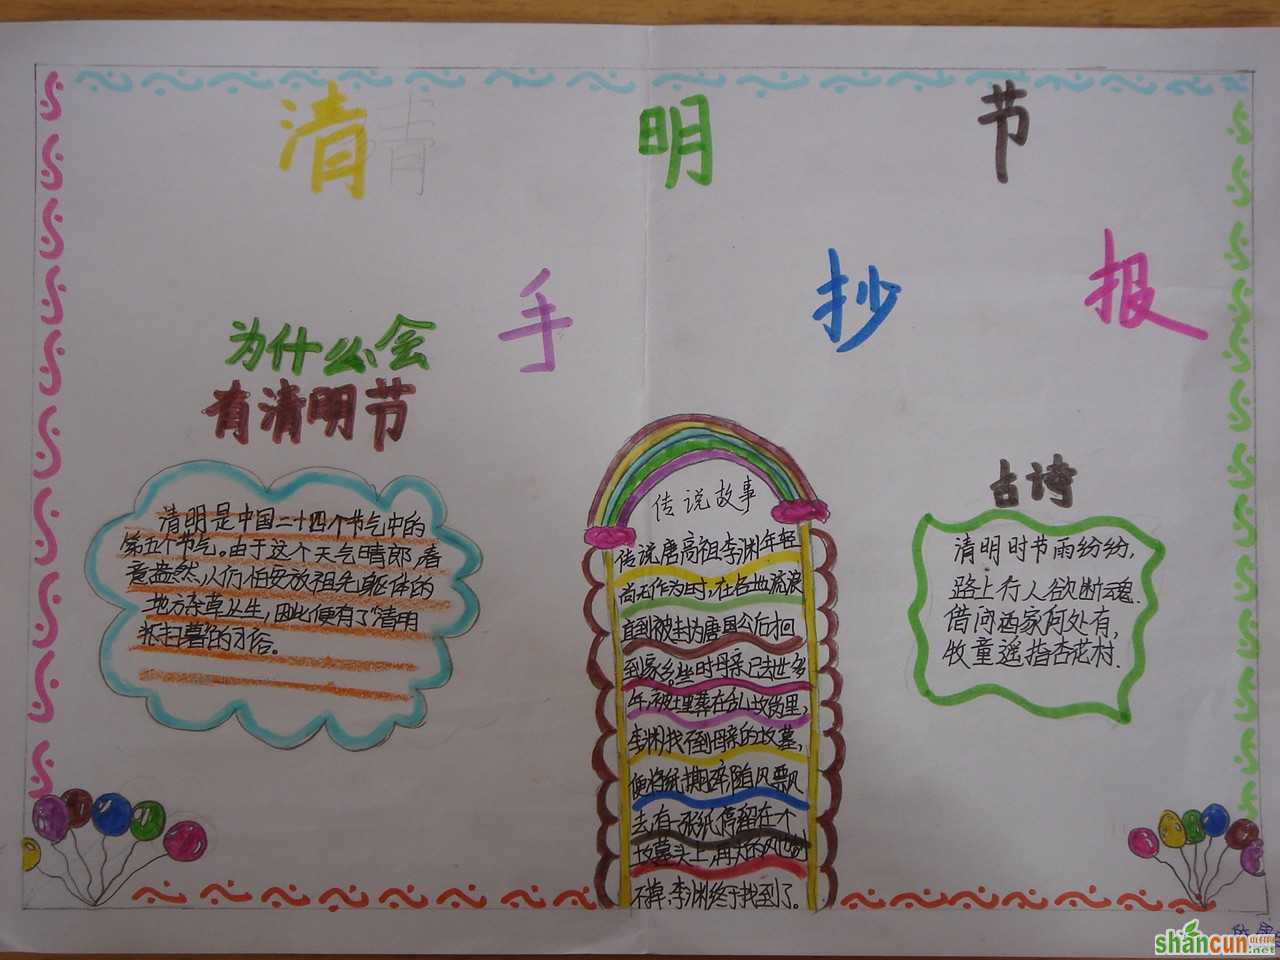 清 明 节
手 抄 报
为什么会
有清明节
清明是中国二十四个节气中的
第五个节气。由于这个天气晴郎,春
意盎然,人们怕安放祖先躯体的
地方杂草丛生,因此便有了"清明
祭扫墓"的习俗。
传说故事
传说唐高祖李渊年轻
尚无作为时,在各地流浪
直到被封为唐国公后才回
到家乡,些时母亲已去世多
年,被埋葬在乱坟岗里,
李渊找不到母亲的坟墓,
便将纸撕碎,随风飘
去,有一张纸停留在一个
坟墓头上,再大的风也吹
不掉,李渊终于找到了。
古诗
清明时节雨纷纷,
路上行人欲断魂.
借问酒家何处有,
牧童遥指杏花村.
shancun
.net